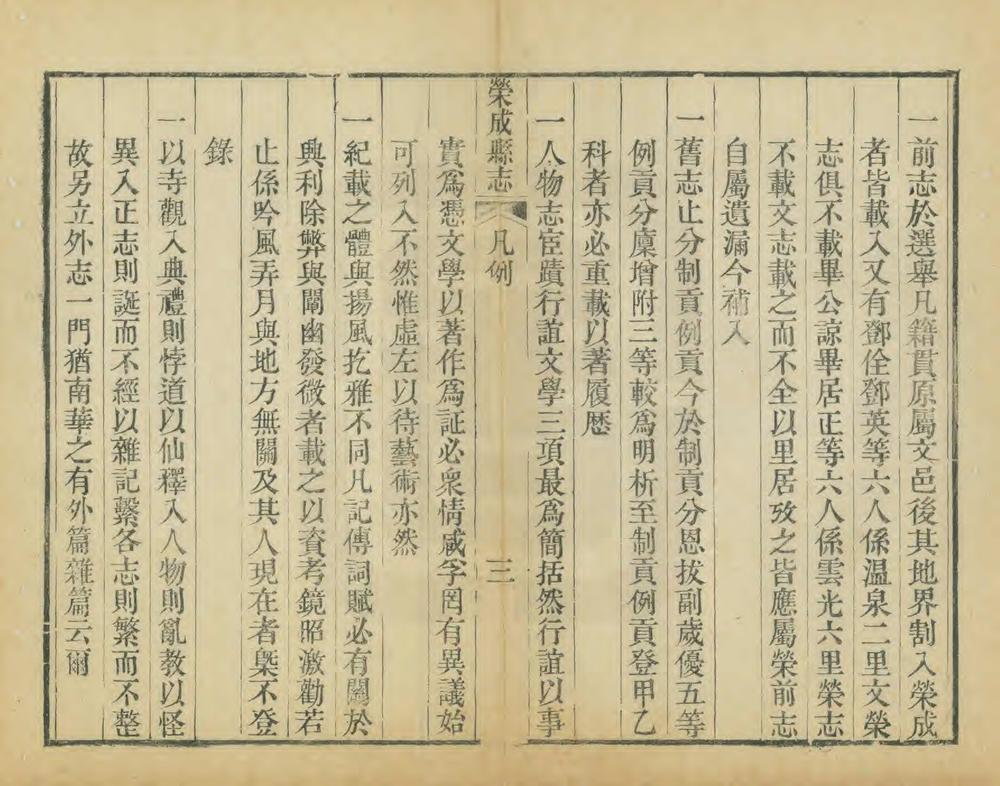 一前志於選舉凡籍貫原屬文邑後其地界割入榮成
者皆載入又有鄧佺鄧英等六人係溫泉二里文榮
志俱不載畢公諒畢居正等六人係雲光六里榮志
不載文志載之而不全以里居攷之皆應屬榮前志
自屬遺漏今補入
一舊志止分制貢例貢今於制貢分恩拔副歲優五等
例貢分廩增附三等較爲明析至制貢例貢登甲乙
科者亦必重載以著履歷
一人物志宦蹟行誼文學三項最爲簡括然行誼以事
榮成縣志 凡例 三
實爲憑文學以著作爲証必衆情咸孚罔有異議始
可列入不然惟虛左以待藝術亦然
一紀載之體與揚風扢雅不同凡記傳詞賦必有關於
興利除弊與闡幽發微者載之以資考鏡昭激勸若
止係吟風弄月與地方無關及其人現在者槩不登
錄
一以寺觀入典禮則悖道以仙釋入人物則亂教以怪
異入正志則誕而不經以雜記繫各志則繁而不整
故另立外志一門猶南華之有外篇雜篇云爾